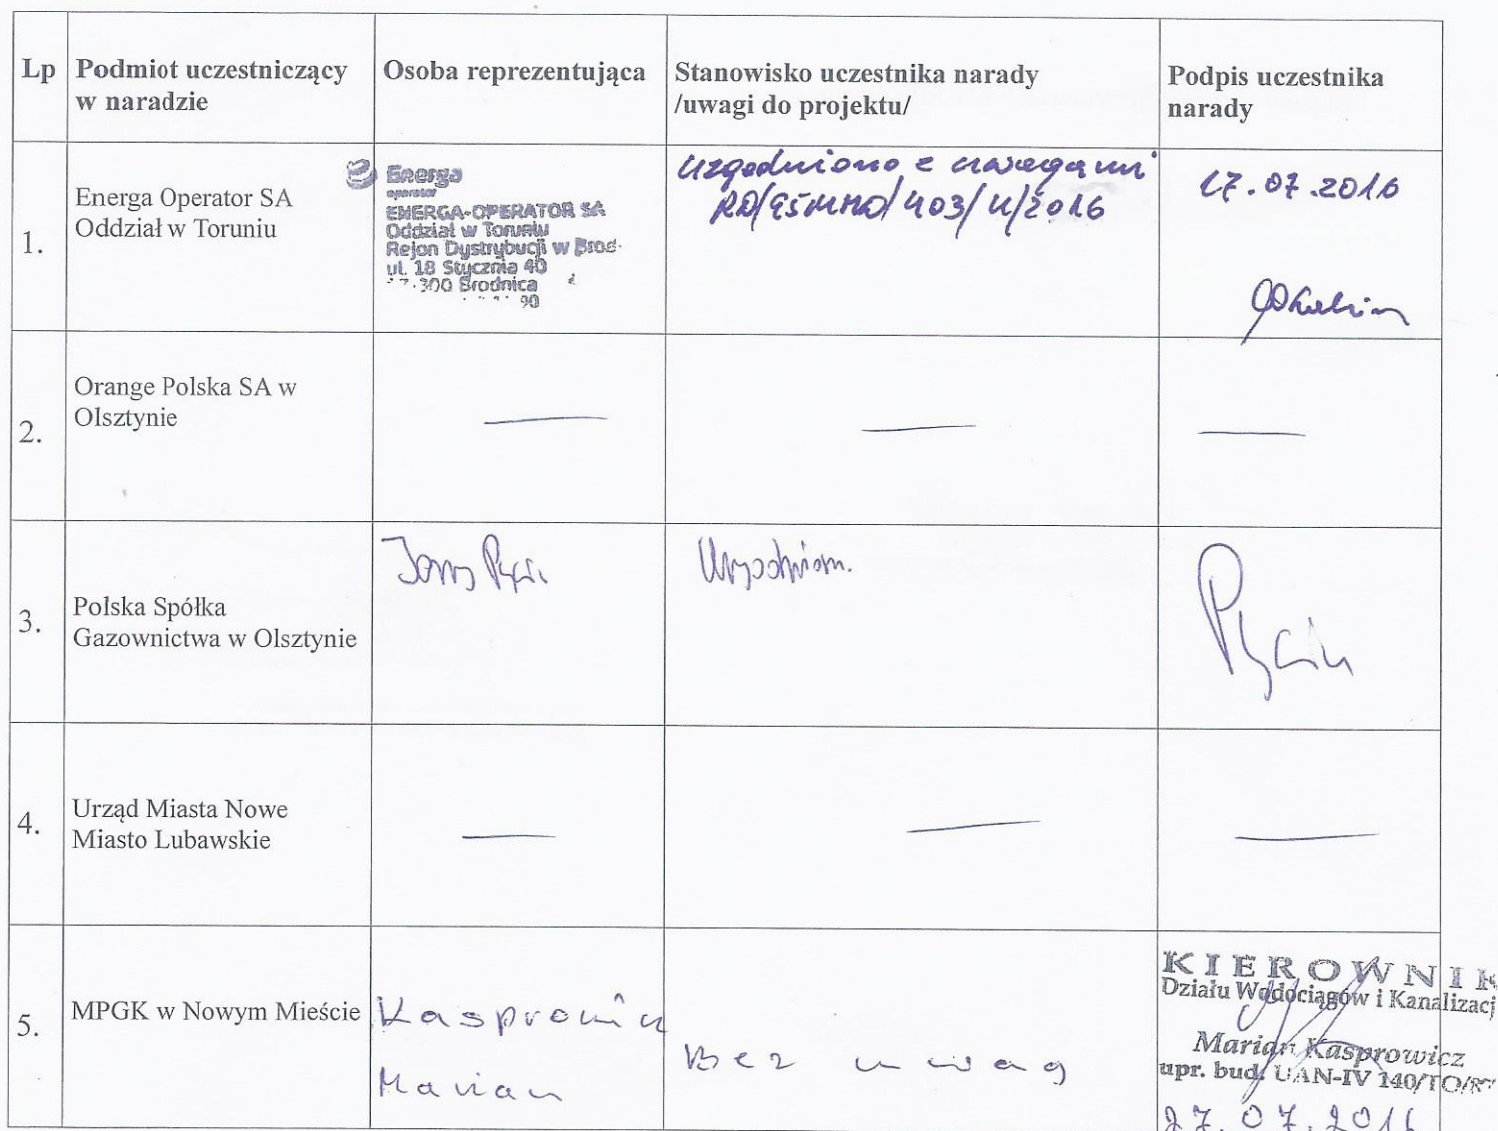 Lp
Podmiot uczestniczący
w naradzie
Osoba reprezentująca
Stanowisko uczestnika narady
/uwagi do projektu/
Podpis uczestnika
narady
1.
Energa Operator SA
Oddział w Toruniu
Energa
operator
ENERGA-OPERATOR SA
Oddział w Toruniu
Rejon Dystrybucji w Brod
ul. 18 Stycznia 40
300 Brodnica
90
Uzgodniono z uwagami
403/U/2016
17.07.2016
2.
Orange Polska SA w
Olsztynie
3.
Polska Spółka
Gazownictwa w Olsztynie
4.
Urząd Miasta Nowe
Miasto Lubawskie
5.
MPGK w Nowym Mieście
Kasprowicz
Marian
Bez uwag
KIEROWNIK
Działu Wodociągów i Kanalizacj
Marian Kasprowicz
upr. bud. UAN-IV 140/TO/87
27.07.2016